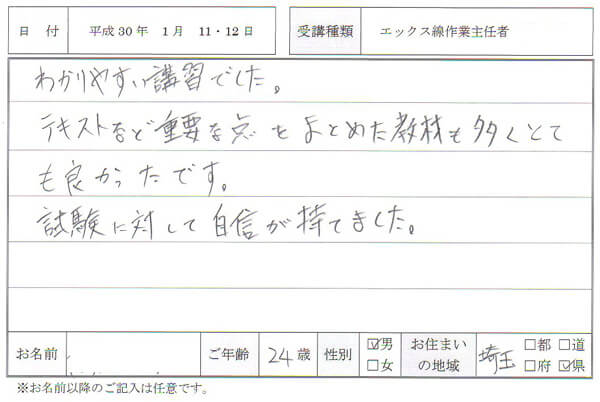 日 付 平成30年 1月 11・12日 受講種類 エックス線作業主任者
わかりやすい講習でした。
テキストなど重要な点をまとめた教材も多くとて
も良かったです。
試験に対して自信が持てました。
お名前 ご年齢 24歳 性別 ☑男 □女 お住まいの地域 埼玉 □都 □道 □府 ☑県
※お名前以降のご記入は任意です。